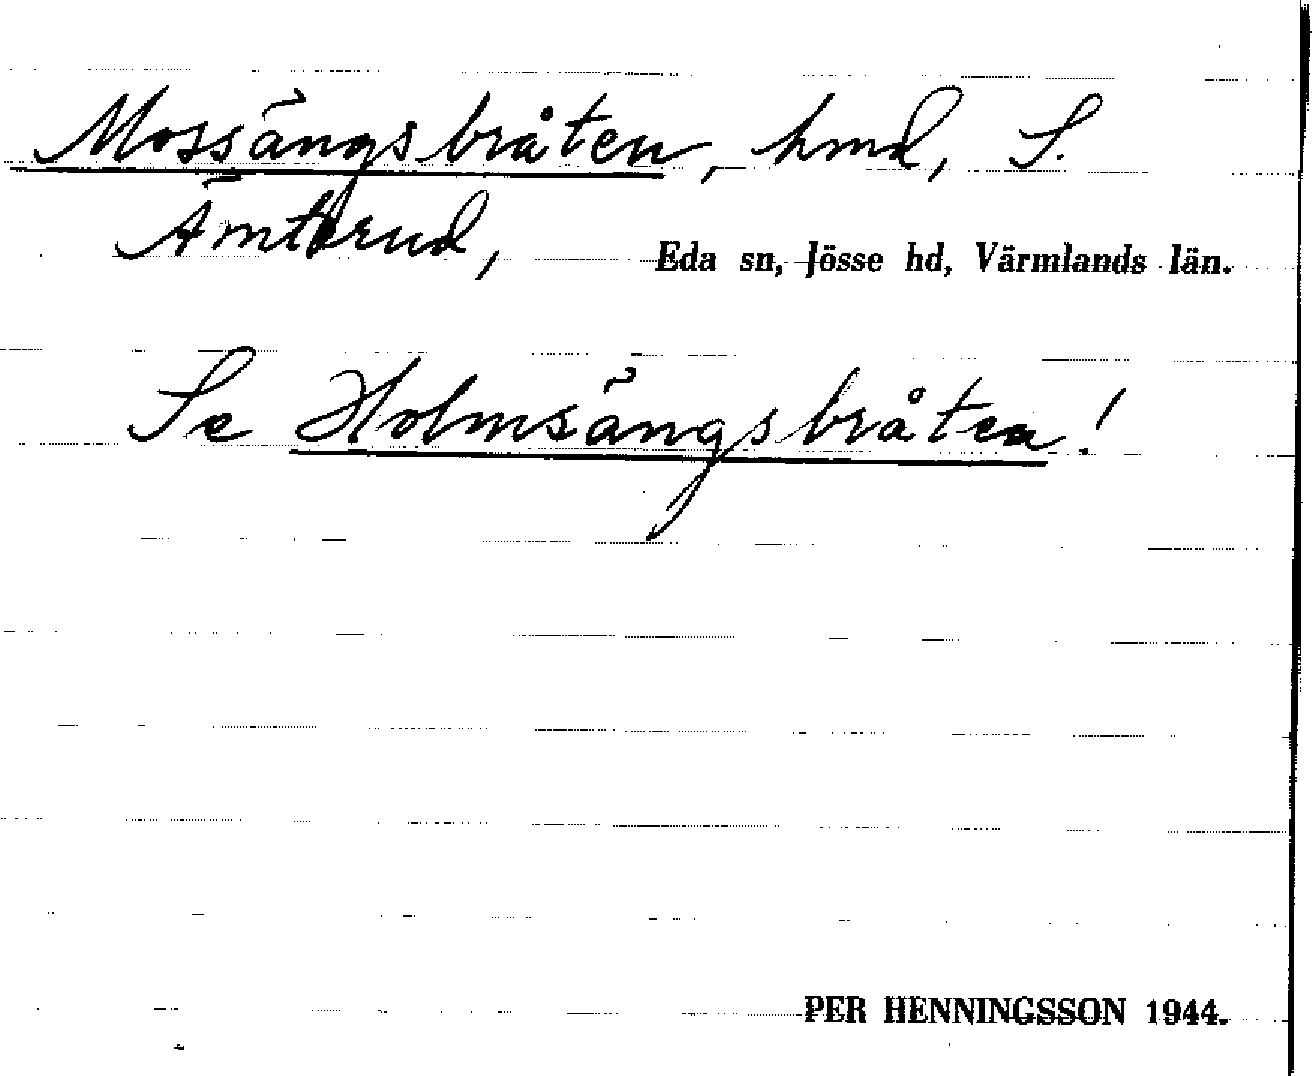 Mossängsbråten, hmd, S.
Ämterud,
Eda sn, Jösse hd, Värmlands län.
Se Holmsängsbråten!
PER HENNINGSSON 1944.